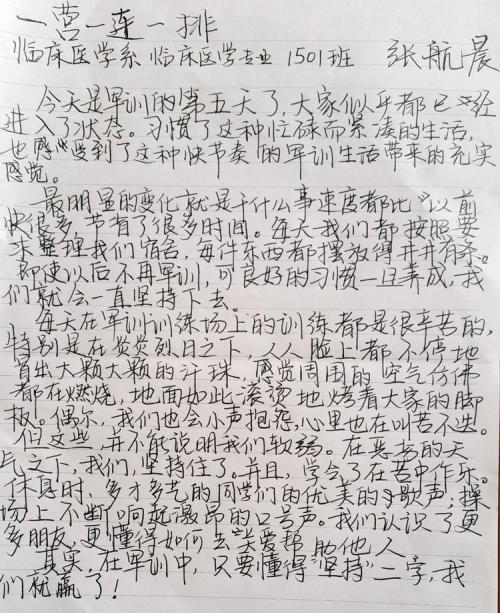 一营一连一排
临床医学系 临床医学专业 1501班 张航晨
今天是军训的第五天了,大家似乎都已经
进入了状态。习惯了这种忙碌而紧凑的生活,
也感受到了这种快节奏的军训生活带来的充实
感觉。
最明显的变化就是干什么事速度都比以前
快很多,节省了很多时间。每天我们都按照要
求整理我们宿舍,每件东西都摆放得井井有条。
即使以后不再军训,可良好的习惯一旦养成,我
们就会一直坚持下去。
每天在军训训练场上的训练都是很辛苦的,
特别是在炎炎烈日之下,人人脸上都不停地
冒出大颗大颗的汗珠,感觉周围的空气仿佛
都在燃烧,地面如此滚烫地烤着大家的脚
板。偶尔,我们也会小声抱怨,心里也在叫苦不迭。
但这些,并不能说明我们软弱。在恶劣的天
气之下,我们,坚持住了。并且,学会了在苦中作乐。
休息时,多才多艺的同学们的优美的歌声,操
场上不断响起激昂的口号声。我们认识了更
多朋友,更懂得如何去关爱帮助他人
其实,在军训中,只要懂得“坚持”二字,我
们就赢了!